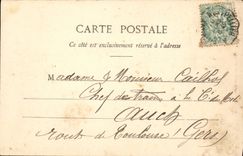 CARTE POSTALE
Ce côté est exclusivement réservé à l'adresse
Madame & Monsieur Cailhol
Chef des trains à la Cie du Midi
Auch
route de Toulouse (Gers)